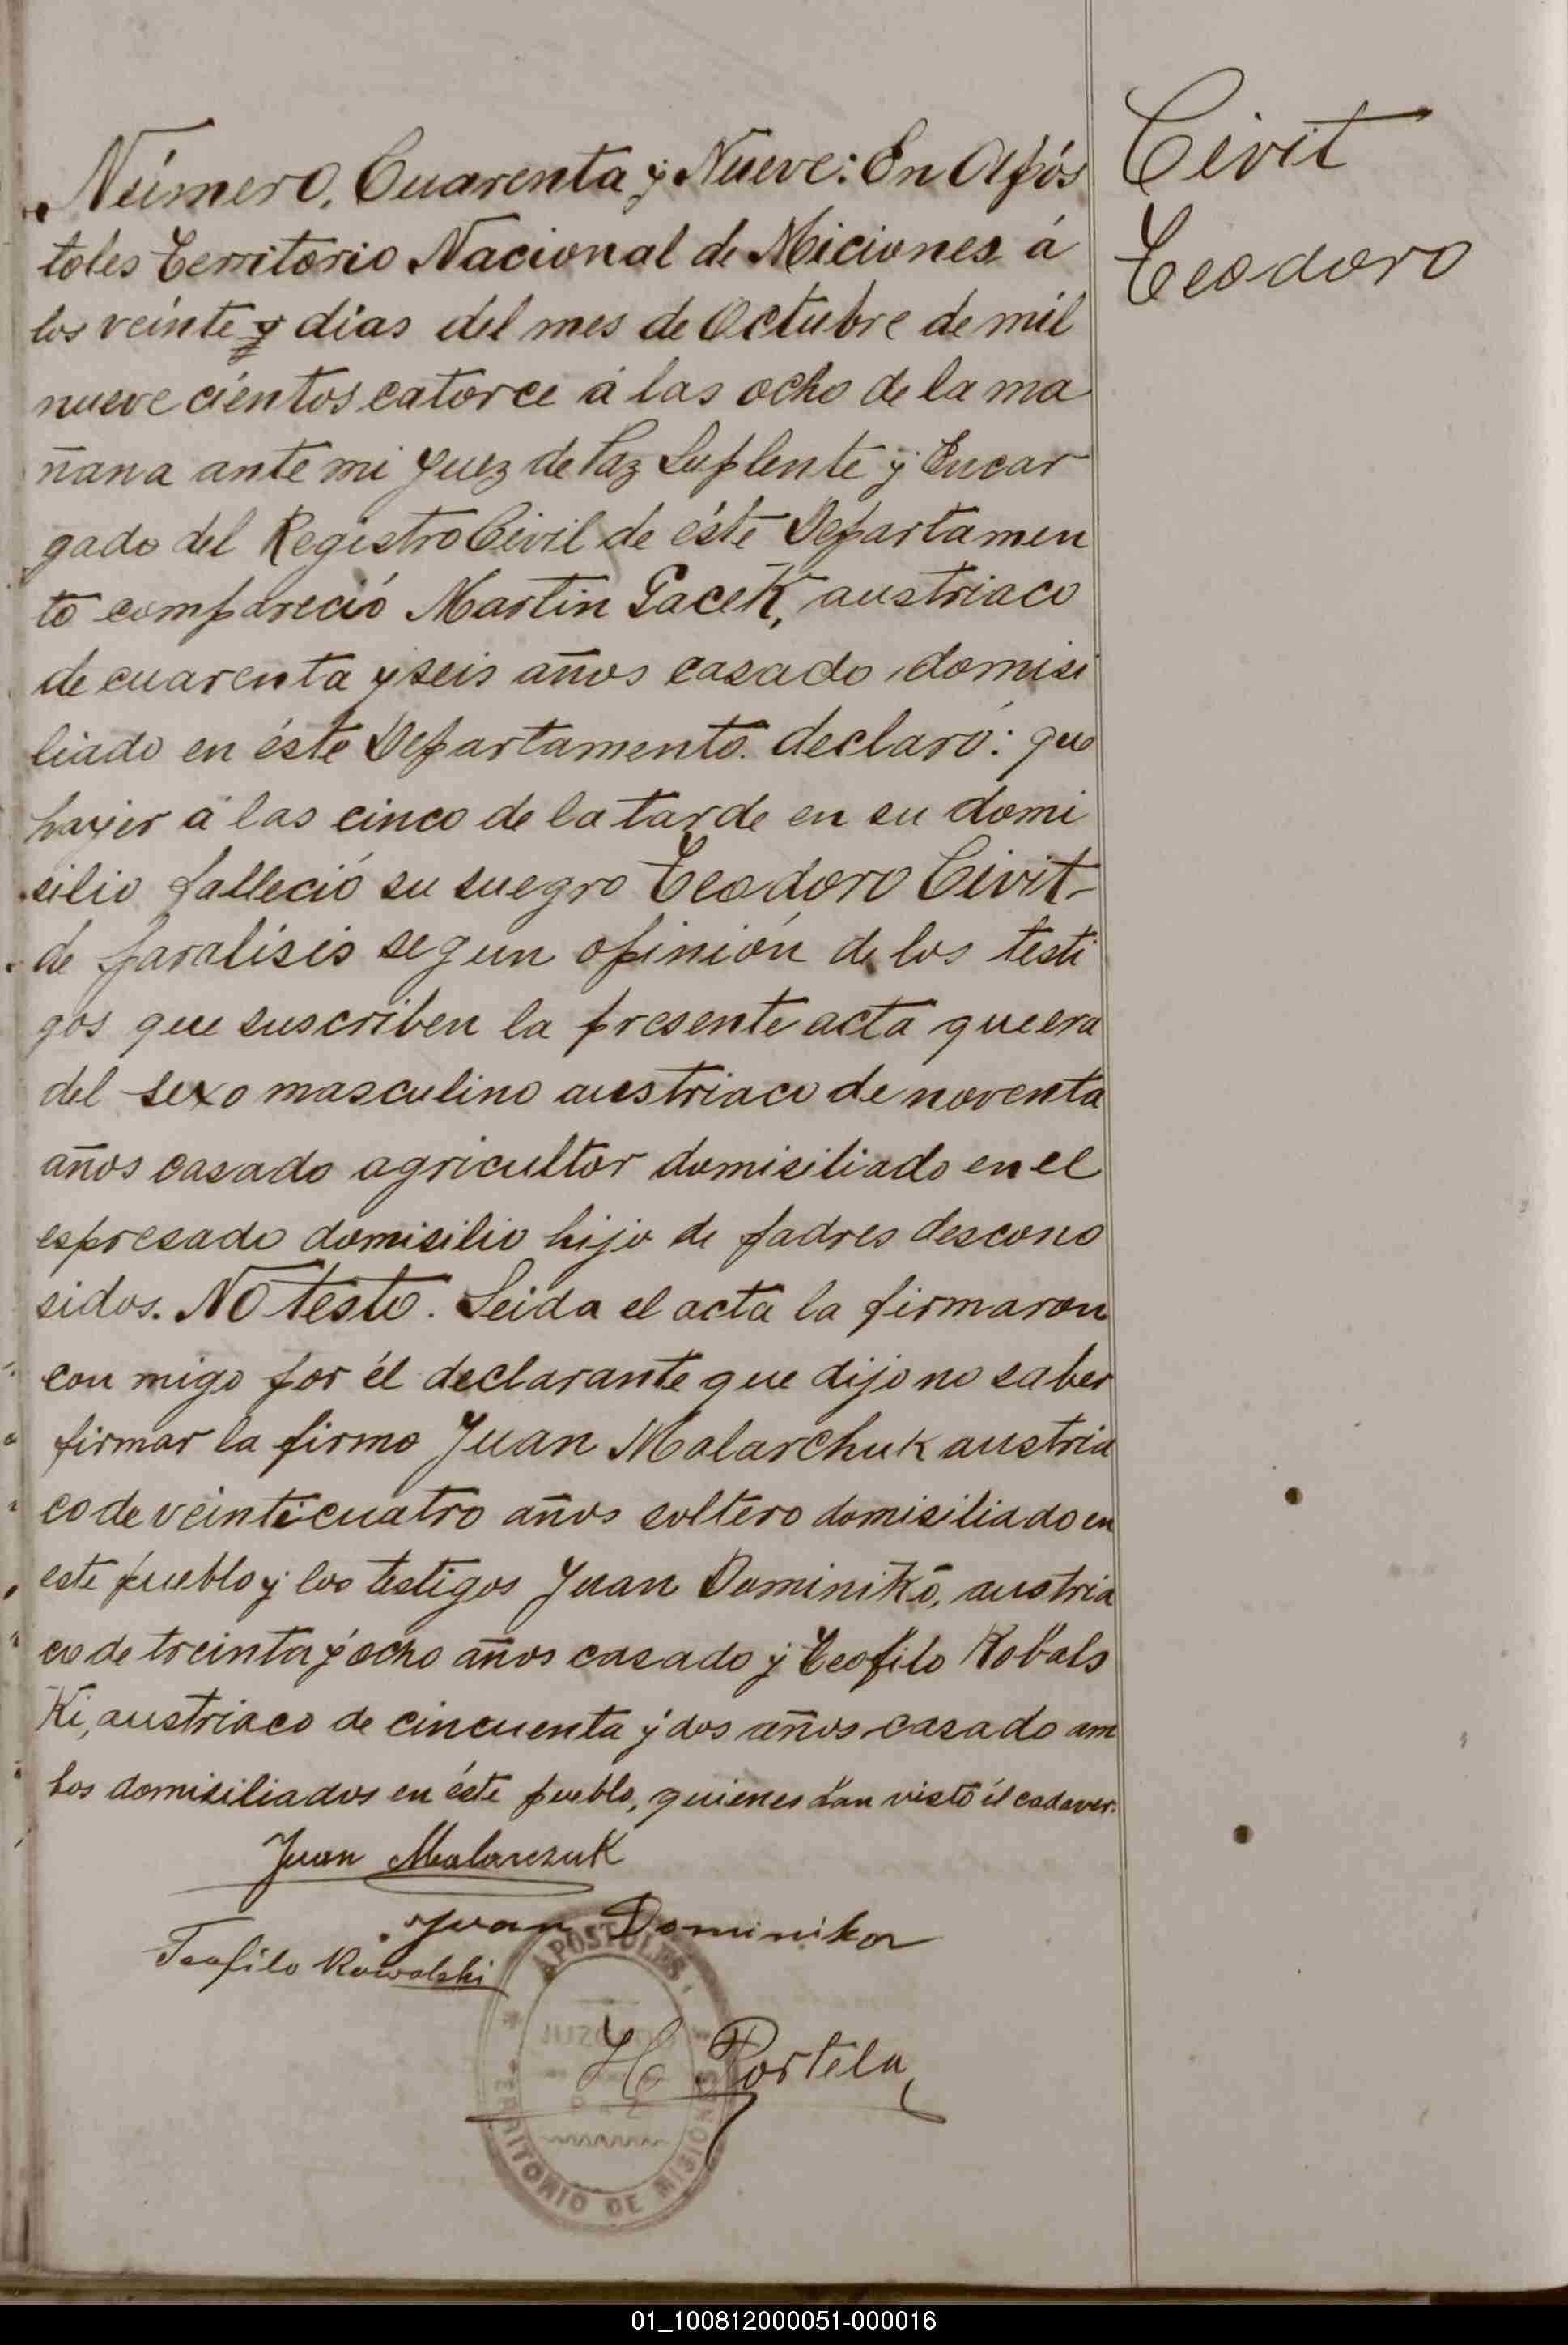 Civit
Teodoro
Número, Cuarenta y Nueve: En Após
toles Territorio Nacional de Miciones á
los veinte y dias del mes de Octubre de mil
nueve cientos catorce á las ocho de la ma
ñana ante mi Juez de Paz Suplente y Encar
gado del Registro Civil de éste Departamen
to compareció Martin Pacek, austriaco
de cuarenta y seis años casado domisi
liado en éste Departamento. declaró: que
hayer á las cinco de la tarde en su domi
silio falleció su suegro Teodoro Civit
de paralisis segun opinión de los testi
gos que suscriben la presente acta que era
del sexo masculino austriaco de noventa
años casado agricultor domisiliado en el
espresado domisilio hijo de padres descono
sidos. No testo. Leida el acta la firmaron
con migo por él declarante que dijo no saber
firmar la firmo Juan Malarchuk austria
co de veinticuatro años soltero domisiliado en
este pueblo y los testigos Juan Dominikó, austria
co de treinta y ocho años casado y Teofilo Kobals
Ki, austriaco de cincuenta y dos años casado am
bos domisiliados en éste pueblo, quienes han visto él cadaver.
Juan Malarczuk
Juan Dominiko
Teofilo Kowalski
APOSTOLES
JUZGADO
DE
PAZ
H Portela
TERRITORIO DE MISIONES
01_100812000051-000016